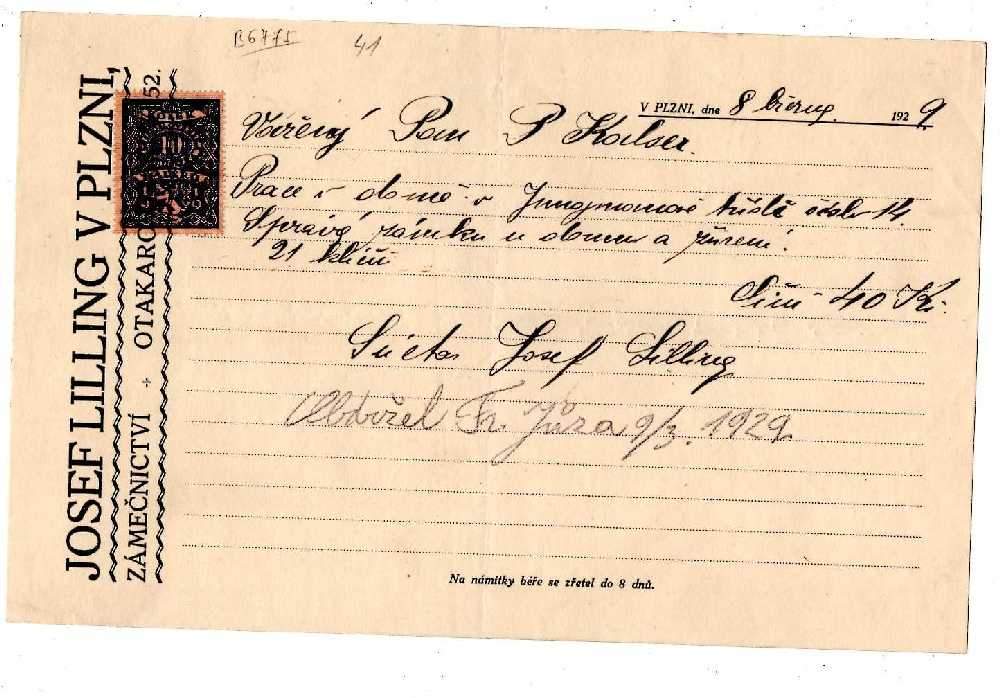 B6775 41
JOSEF LILLING V PLZNI,
ZÁMEČNICTVÍ + OTAKARO 52.
V PLZNI, dne 8 března 1929.
Vážený Pan P
Prace v domě v Jungmanově třídě číslo 14.
Správa zámku u domu a
21 klíčů
40 Kč.
Josef Lilling
Obdržel Fr. Jůza 9/3. 1929.
Na námitky béře se zřetel do 8 dnů.